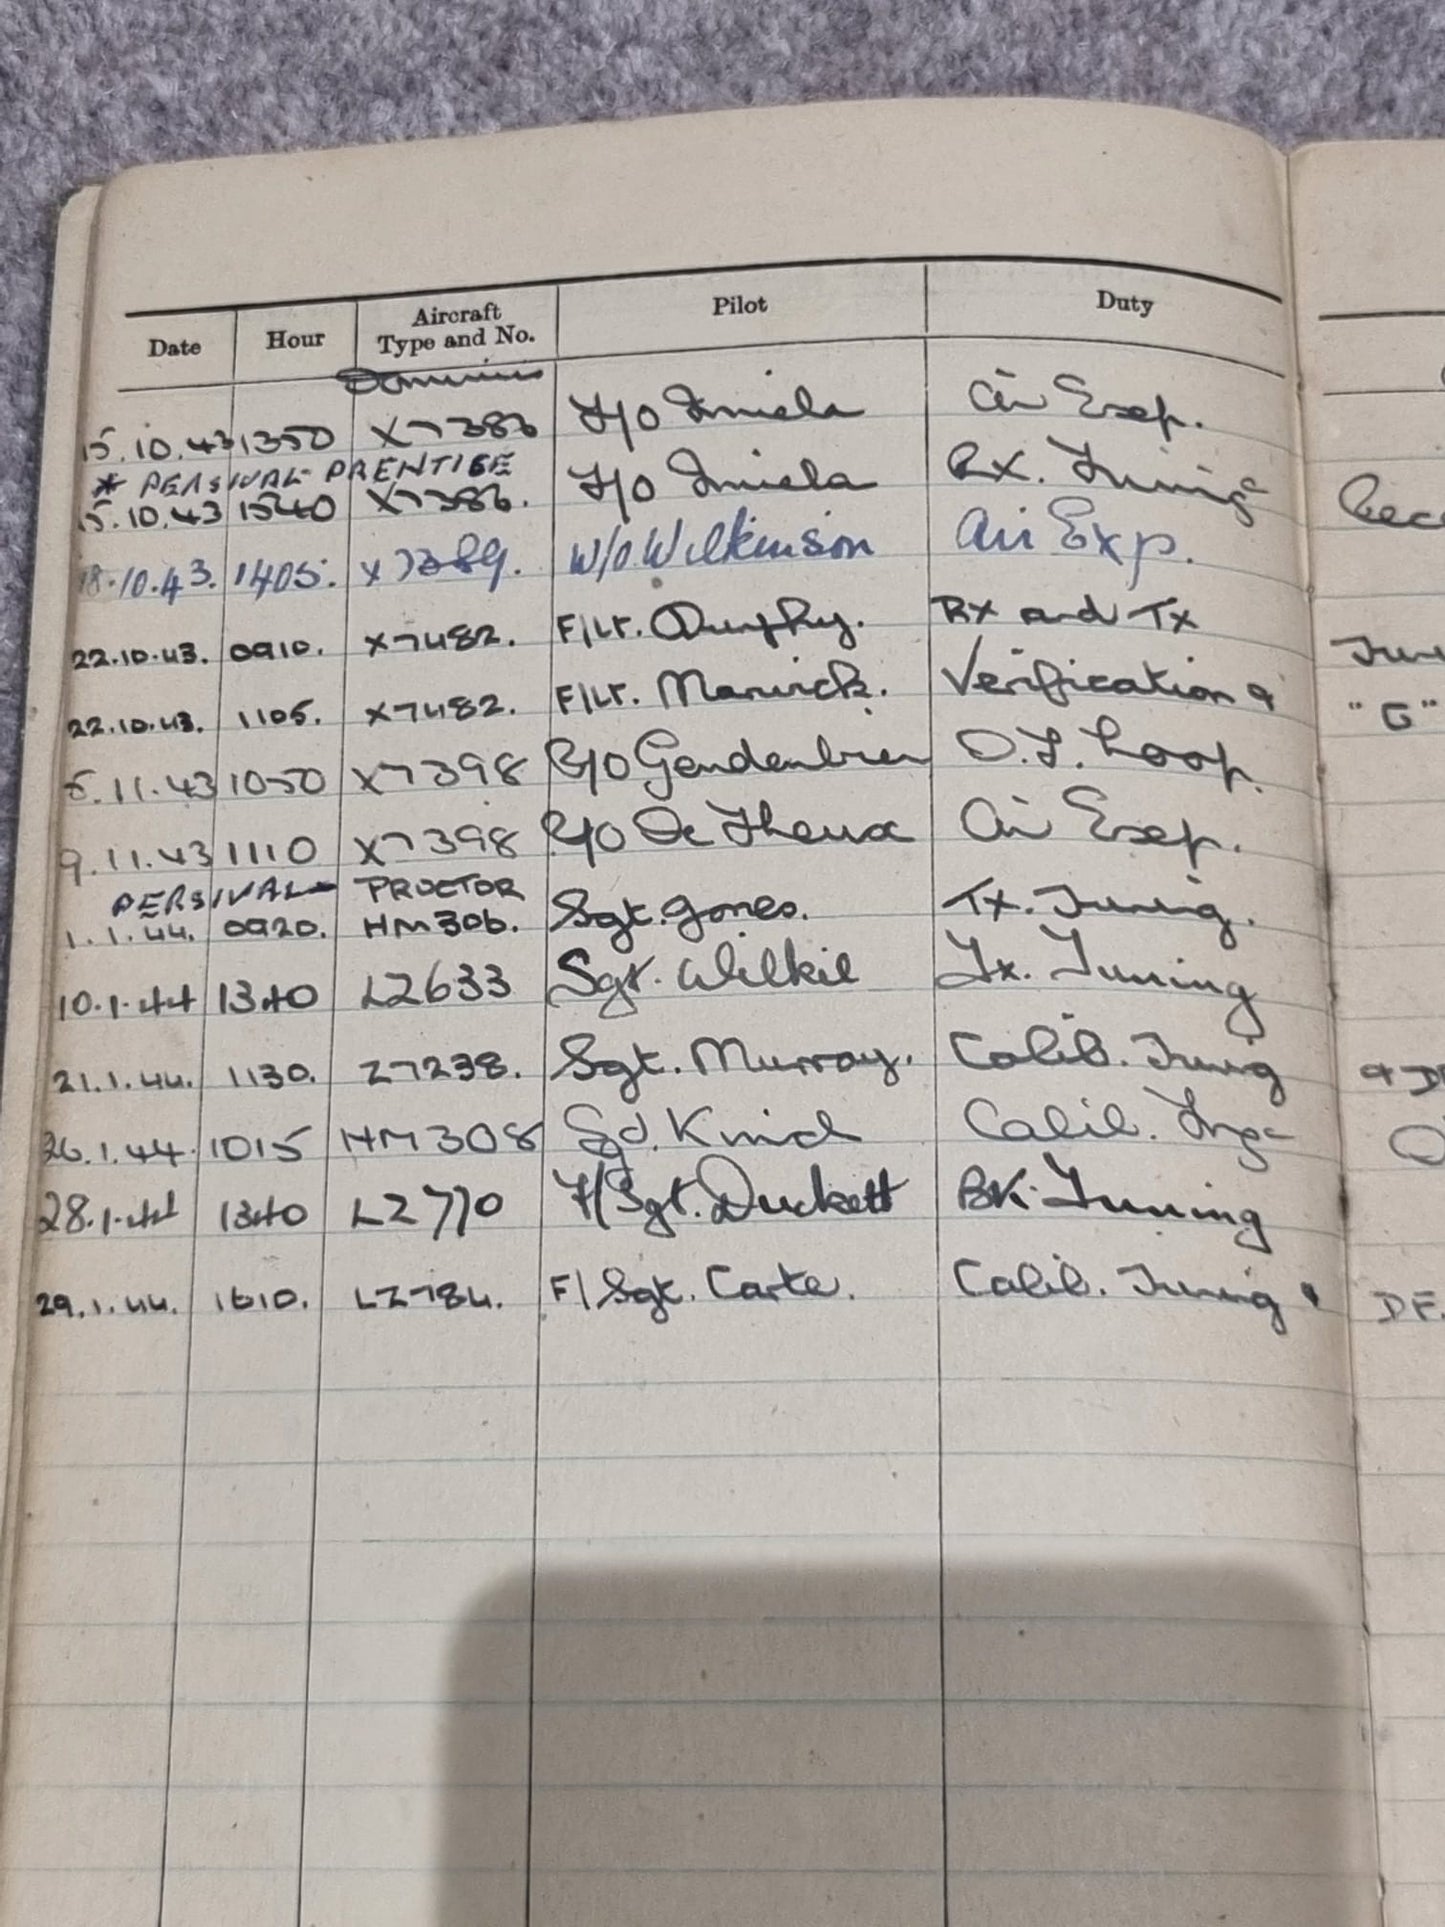 Date Hour Aircraft Type and No. Pilot Duty
15.10.43 1350 X7386 F/O Air Exp.
* PERSIVAL PRENTICE
15.10.43 1540 X7386. F/O RX. Tuning
18.10.43. 1405. X7389. W/O Wilkinson Air Exp.
22.10.43. 0910. X7482. F/Lt. Dunphy. RX and TX
22.10.43. 1105. X7482. F/Lt. Marwick. Verification "G"
5.11.43 1050 X7398 P/O D.F. Loop.
9.11.43 1110 X7398 P/O De Theux Air Exp.
PERSIVAL PROCTOR
1.1.44. 0920. HM306. Sgt. Jones. Tx. Tuning.
10.1.44 1340 L2633 Sgt. Tx. Tuning
21.1.44. 1130. Z7238. Sgt. Murray. Calib. Tuning
26.1.44. 1015 HM308 Calib. Tng
28.1.44 1340 LZ770 F/Sgt. Duckett BK. Tuning
29.1.44. 1610. LZ784. F/Sgt. Carte. Calib. Tuning DF.